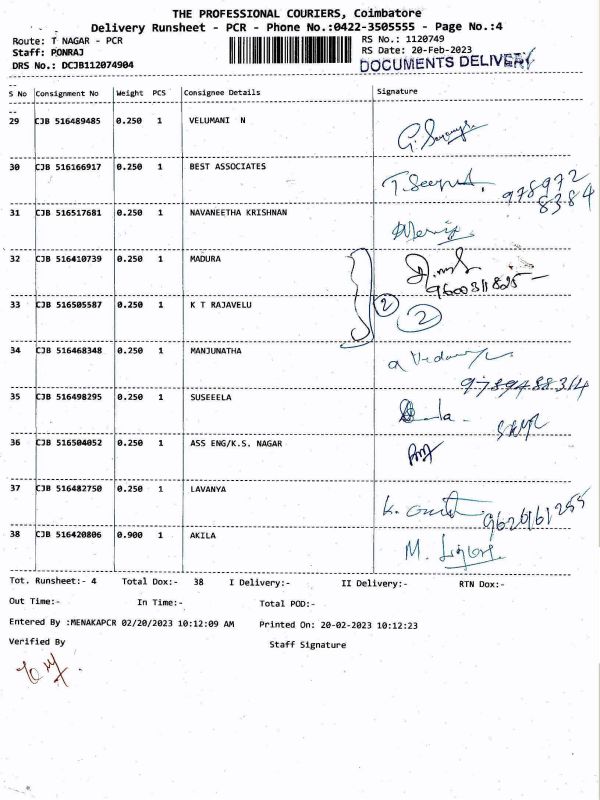 THE PROFESSIONAL COURIERS, Coimbatore
Delivery Runsheet - PCR - Phone No.:0422-3505555 - Page No.:4
Route: T NAGAR - PCR
RS No.: 1120749
Staff: PONRAJ
RS Date: 20-Feb-2023
DRS No.: DCJB112074904
DOCUMENTS DELIVERY
S No Consignment No Weight PCS Consignee Details Signature
29 CJB 516489485 0.250 1 VELUMANI N
30 CJB 516166917 0.250 1 BEST ASSOCIATES
978972
8384
31 CJB 516517681 0.250 1 NAVANEETHA KRISHNAN
32 CJB 516410739 0.250 1 MADURA
9600311825
33 CJB 516505587 0.250 1 K T RAJAVELU
2 2
34 CJB 516468348 0.250 1 MANJUNATHA
9789488314
35 CJB 516498295 0.250 1 SUSEEELA
36 CJB 516504052 0.250 1 ASS ENG/K.S. NAGAR
37 CJB 516482750 0.250 1 LAVANYA
9620161255
38 CJB 516420806 0.900 1 AKILA
Tot. Runsheet:- 4 Total Dox:- 38 I Delivery:- II Delivery:- RTN Dox:-
Out Time:- In Time:- Total POD:-
Entered By :MENAKAPCR 02/20/2023 10:12:09 AM Printed On: 20-02-2023 10:12:23
Verified By Staff Signature